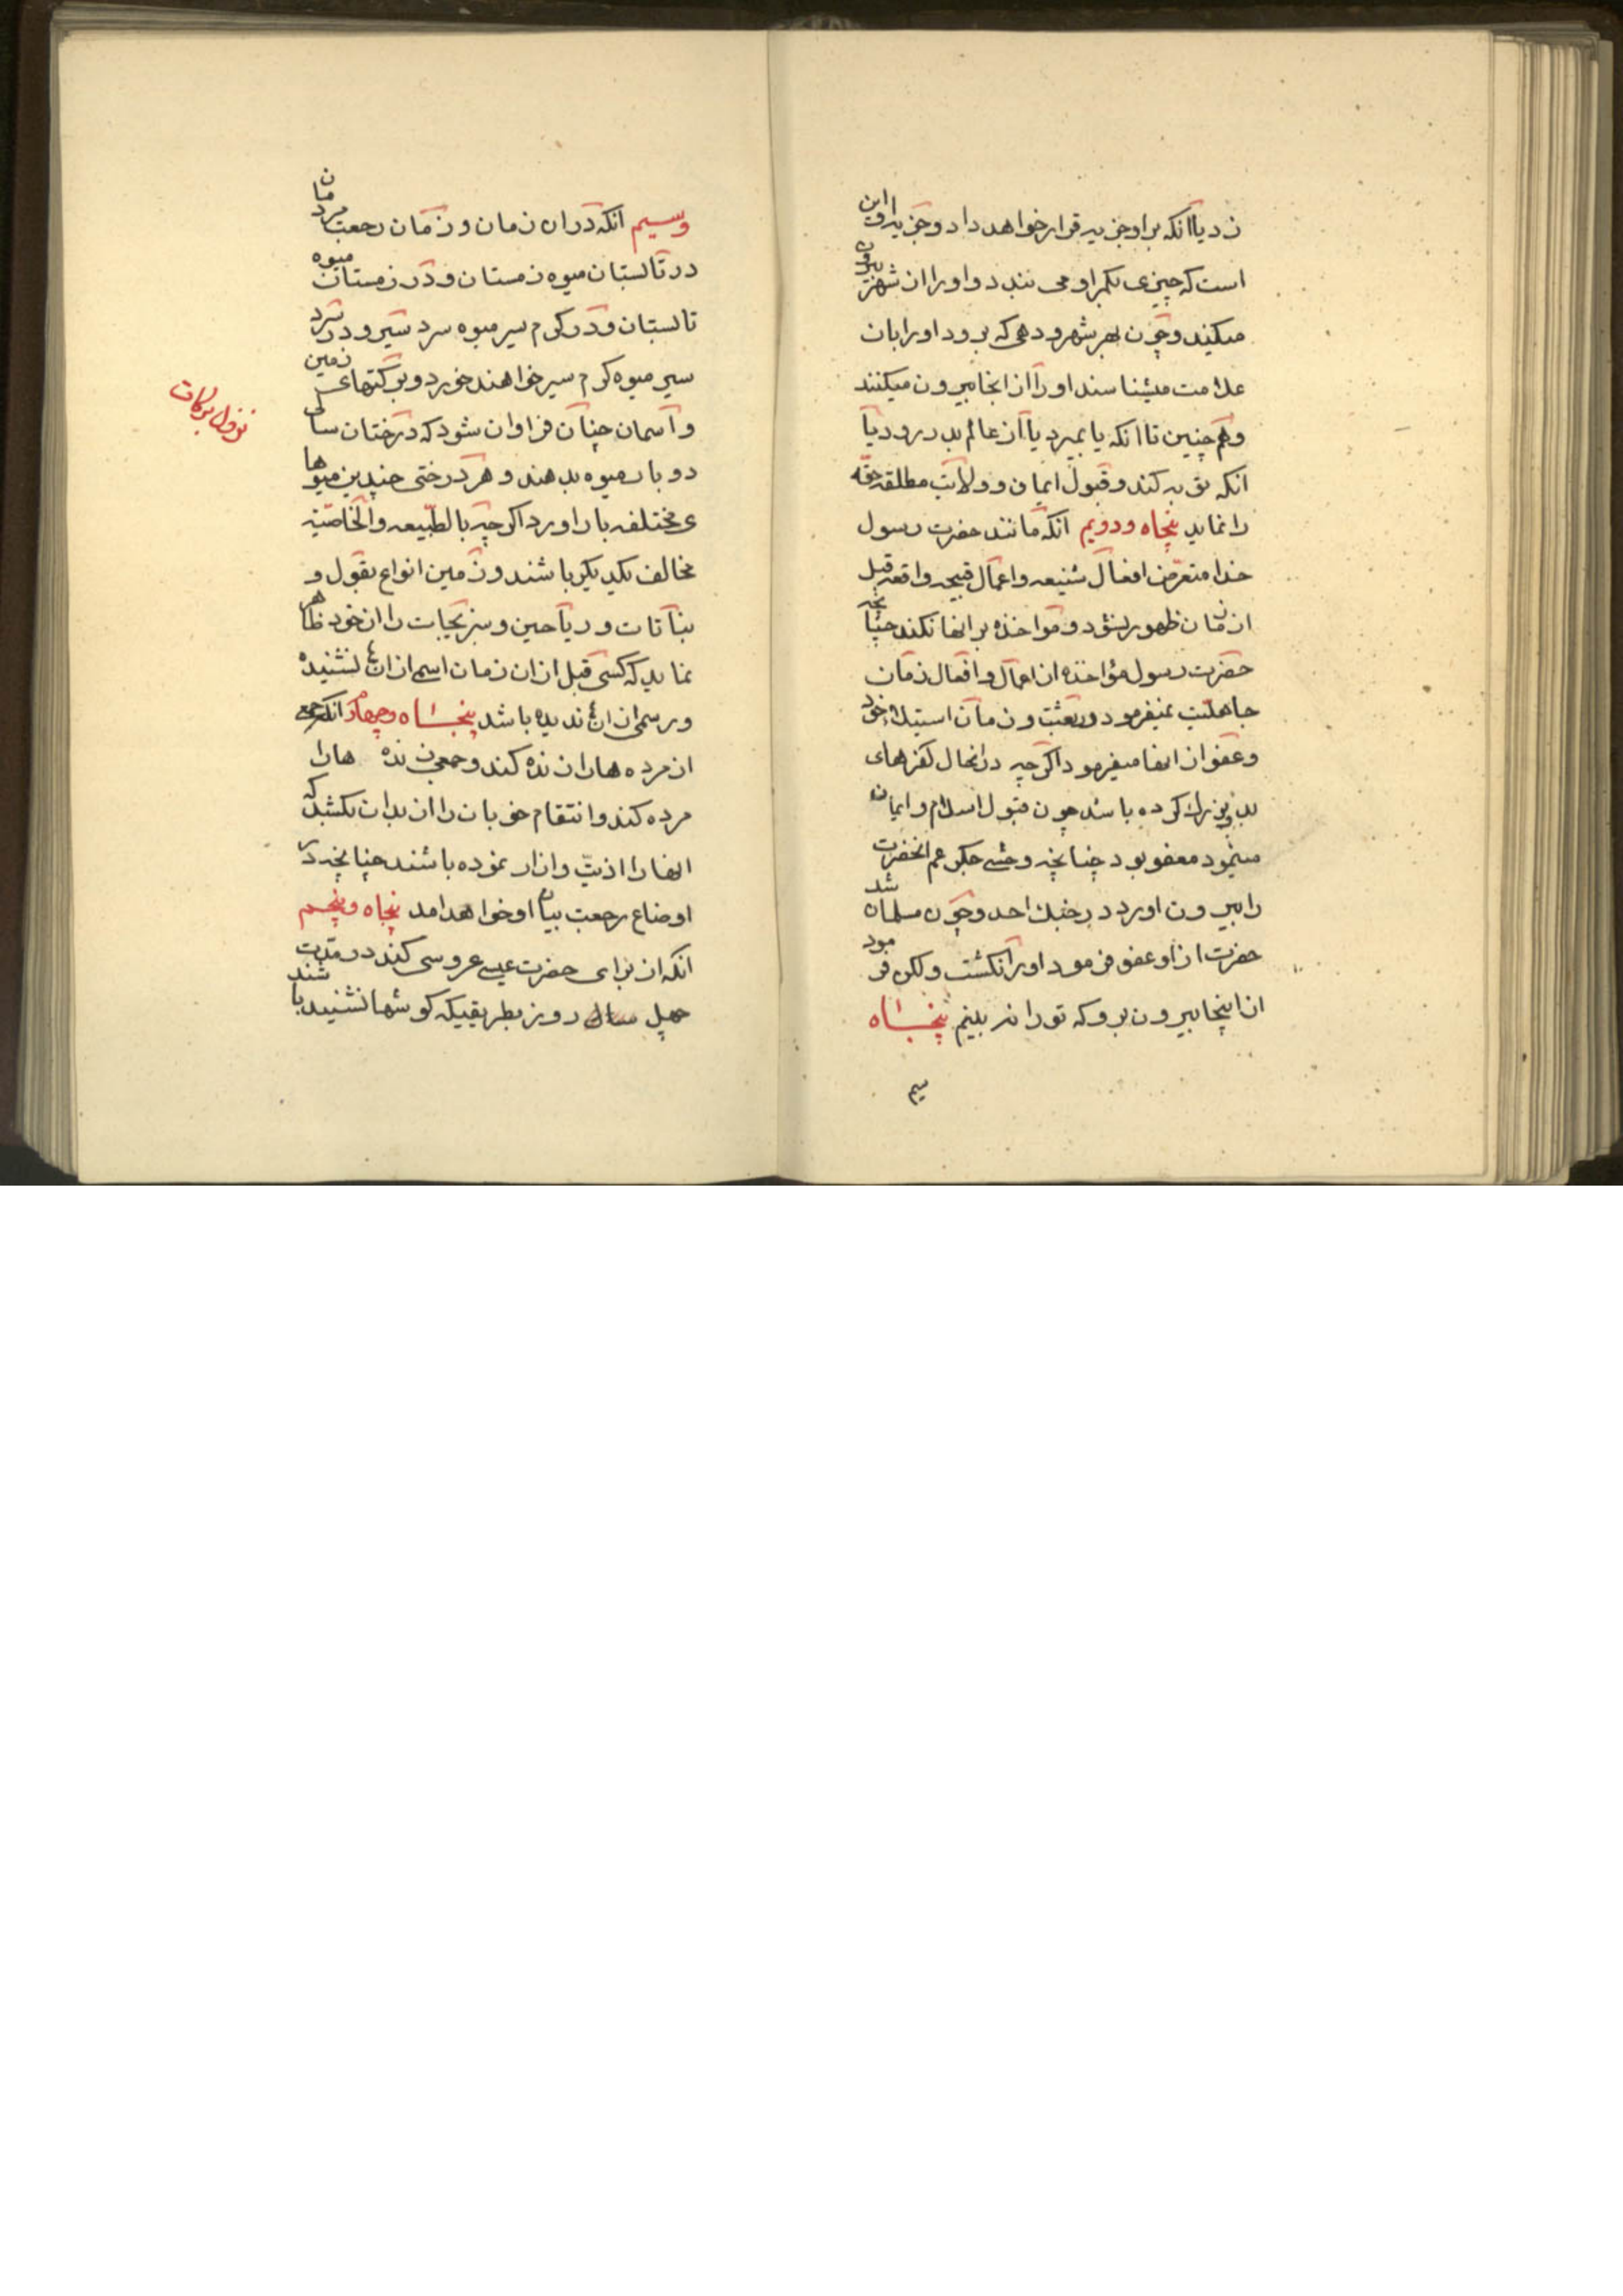 زد یا آنکه بر او جزیه قرار خواهد داد و جزیه او این
است که چیزی بکمر او می بندد و او را از شهر بیرون
میکنند و چون بهر شهر و دهی که برود او را بان
علامت میشناسند او را از انجا بیرون میکنند
و همچنین تا انکه یا بمیرد یا از عالم بدر رود یا
انکه توبه کند و قبول ایمان و ولایت مطلقه حقه
را نماید پنجاه و دویم انکه مانند حضرت رسول
خدا متعرض افعال شنیعه و اعمال قبیحه واقعه قبل
از زمان ظهور نشود و مؤاخذه بر انها نکند چنانچه
حضرت رسول مؤاخذه از اعمال و افعال زمان
جاهلیت نمیفرمود در بعثت و زمان استیلاء خود
و عفو از انها میفرمود اگرچه در انحال کفرهای
بد بزرك کرده باشد چون قبول اسلام و ایمان
مینمود معفو بود چنانچه وحشی جگر عم انحضرت
را بیرون اورد در جنك احد و چون مسلمان شد
حضرت از او عفو فرمود او را نکشت ولکن فرمود
از اینجا بیرون برو که تو را نه بینم پنجاه
سیم
وسیم انکه در ان زمان و زمان رجعت مردمان
در تابستان میوه زمستان و در زمستان میوه
تابستان و در گرم سیر میوه سرد سیر و در سرد
سیر میوه گرم سیر خواهند خورد و برکتهای زمین
و آسمان چنان فراوان شود که درختان سالی
دو بار میوه بدهند و هر درختی چندین میوها
ی مختلفه بار اورد اگرچه بالطبیعه والخاصیّة
مخالف یکدیگر باشند و زمین انواع بقول و
نباتات و ریاحین و سبزیجات را از خود ظاهر
نماید که کسی قبل از ان زمان اسم از ان نشنیده
و رسمی از ان ندیده باشد پنجاه وچهارم انکه جمعی
از مرده ها را زنده کند و جمعی زنده ها را
مرده کند و انتقام خوبان را از بدان بکشد که
انها را اذیّت و ازار نموده باشند چنانچه در
اوضاع رجعت بیان او خواهد امد پنجاه وپنجم
انکه از برای حضرت عیسی عروسی کند در مدّت
چهل روز بطریقیکه گوشها نشنیده باشند
نزول برکات